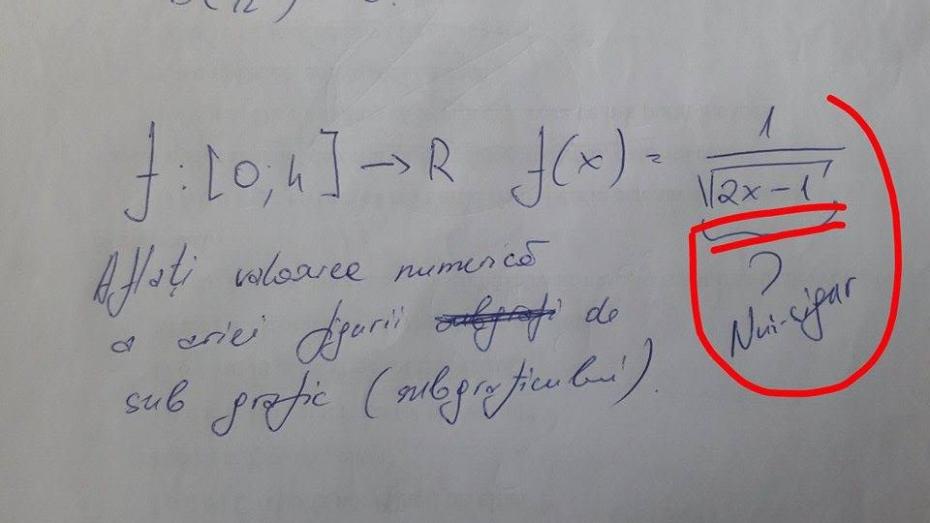 f : [0; 4] → R f(x) = 1/√(2x-1)
?
Nui-sigur
Aflați valoarea numerică
a ariei figurii de
sub grafic (subgraficului).